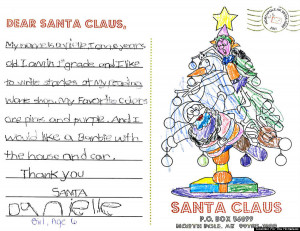 DEAR SANTA CLAUS,
My name is I am years
old I am in 1st grade and I like
to write stories at My reading
work shop. My Favorite colors
are pink and purple. And I
would like a Barbie with
the house and car.
Thank you
SANTA
Danielle
Girl, Age 6
SANTA CLAUS
P.O. BOX
NORTH POLE,